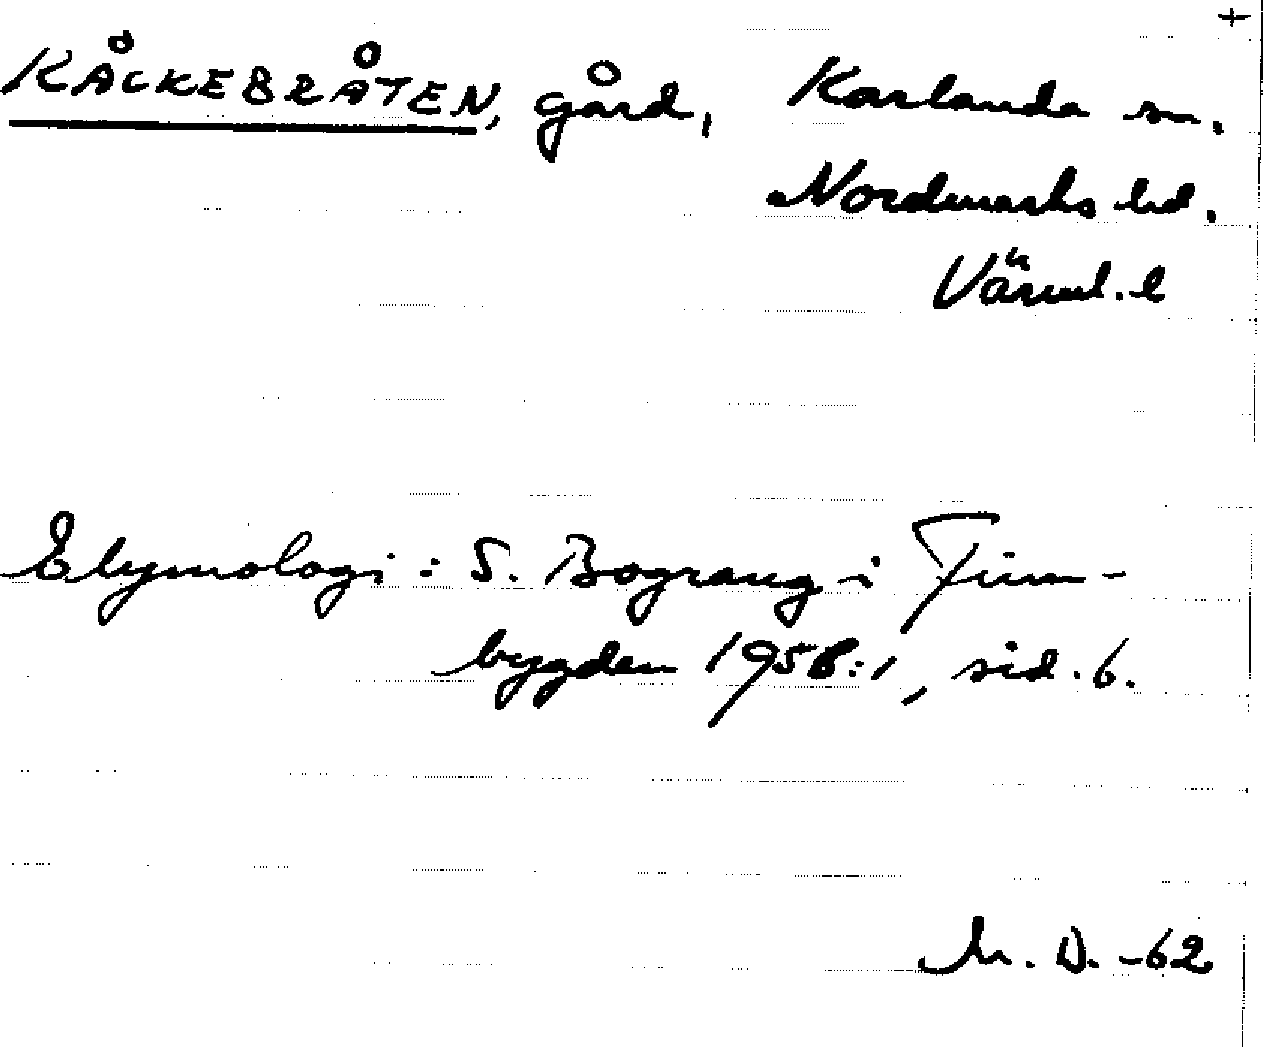 +
KÅCKEBRÅTEN, gård, Karlanda sn.
Nordmarks hd.
Värml. l
Etymologi: S. Bograng i Finn-
bygden 1958:1, sid. 6.
M. D. -62